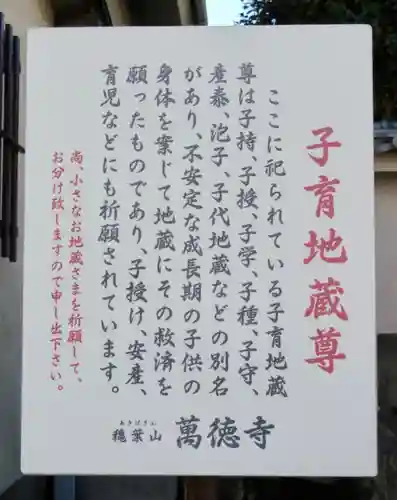 子育地蔵尊
ここに祀られている子育地蔵
尊は子持、子授、子学、子種、子守、
産泰、泡子、子代地蔵などの別名
があり、不安定な成長期の子供の
身体を案じて地蔵にその救済を
願ったものであり、子授け、安産、
育児などにも祈願されています。
尚、小さなお地蔵さまを祈願して、
お分け致しますので申し出下さい。
あきばさん
穐葉山 萬徳寺